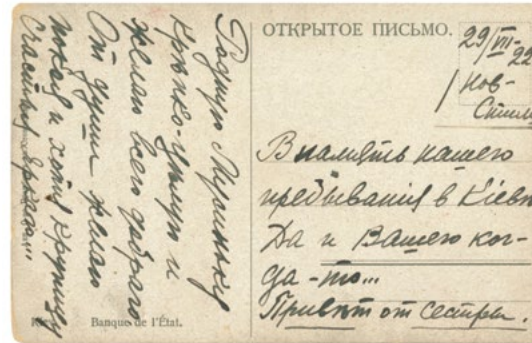 ОТКРЫТОЕ ПИСЬМО.
29/VII-22
нов-
стиль
В память нашего
пребывания в Кіевѣ
Да и Вашего ког-
да-то...
Привѣт от сестры.
Родную
крѣпко-цѣлую и
желаю всего добраго
От души желаю
покоя и хотя крупицу
счастья
Banque de l'État.